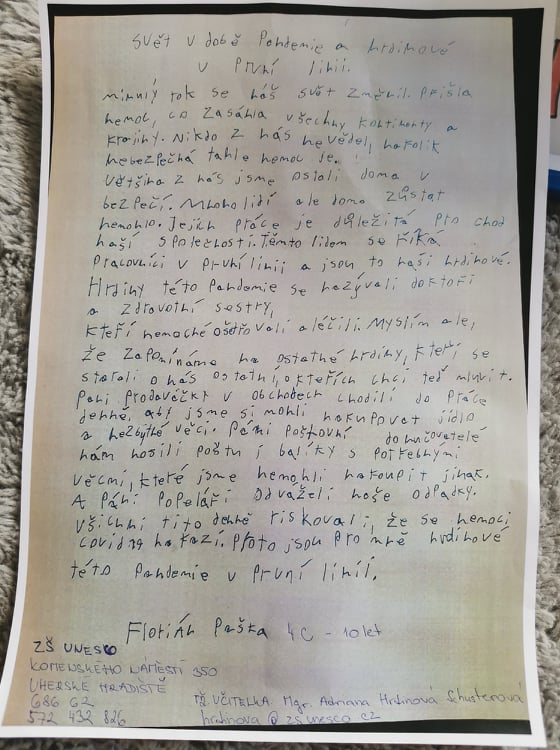 Svět v době Pandemie a hrdinové
v První linii.
minulý rok se náš svět změnil. Přišla
nemoc, co zasáhla všechny kontinenty a
krajiny. Nikdo z nás nevěděl, nakolik
nebezpečná tahle nemoc je.
většina z nás jsme ostali doma v
bezpečí. Mnoho lidí ale doma zůstat
nemohlo. Jejich práce je důležitá pro chod
naší společnosti. Těmto lidem se říká
Pracovníci v první linii a jsou to naši hrdinové.
Hrdiny této Pandemie se nazývali doktoři
a zdravotní sestry,
kteří nemocné ošetřovali a léčili. Myslím ale,
že zapomínáme na ostatné hrdiny, kteří se
starali o nás ostatní, o kteřích chci teď mluvit.
Paní Prodavačky v obchodech chodili do Práce
denně, aby jsme si mohli nakupovat jídlo
a nezbytné věci. Páni Poštovní doručovatelé
nám nosili Poštu i balíky s potřebnými
věcmi, které jsme nemohli nakoupit jinak.
A Páni Popeláři odváželi naše odpadky.
všichni tito denně riskovali, že se nemocí
covid19 nakazí. Proto jsou pro mně hrdinové
této Pandemie v První linii.
Florián Paška 4C - 10 let
ZŠ UNESCO
KOMENSKÉHO NÁMĚSTÍ 350
UHERSKÉ HRADIŠTĚ
686 62 TŘ. UČITELKA: Mgr. Adriana Hrdinová Schusterová
572 432 826 hrdinova @ zsunesco.cz